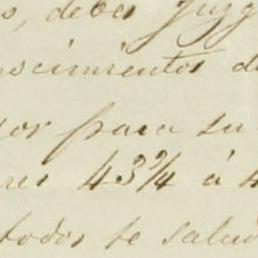 s, deber juzg
nocimientos d
or para su
res 43¾ á 4
todos te salud